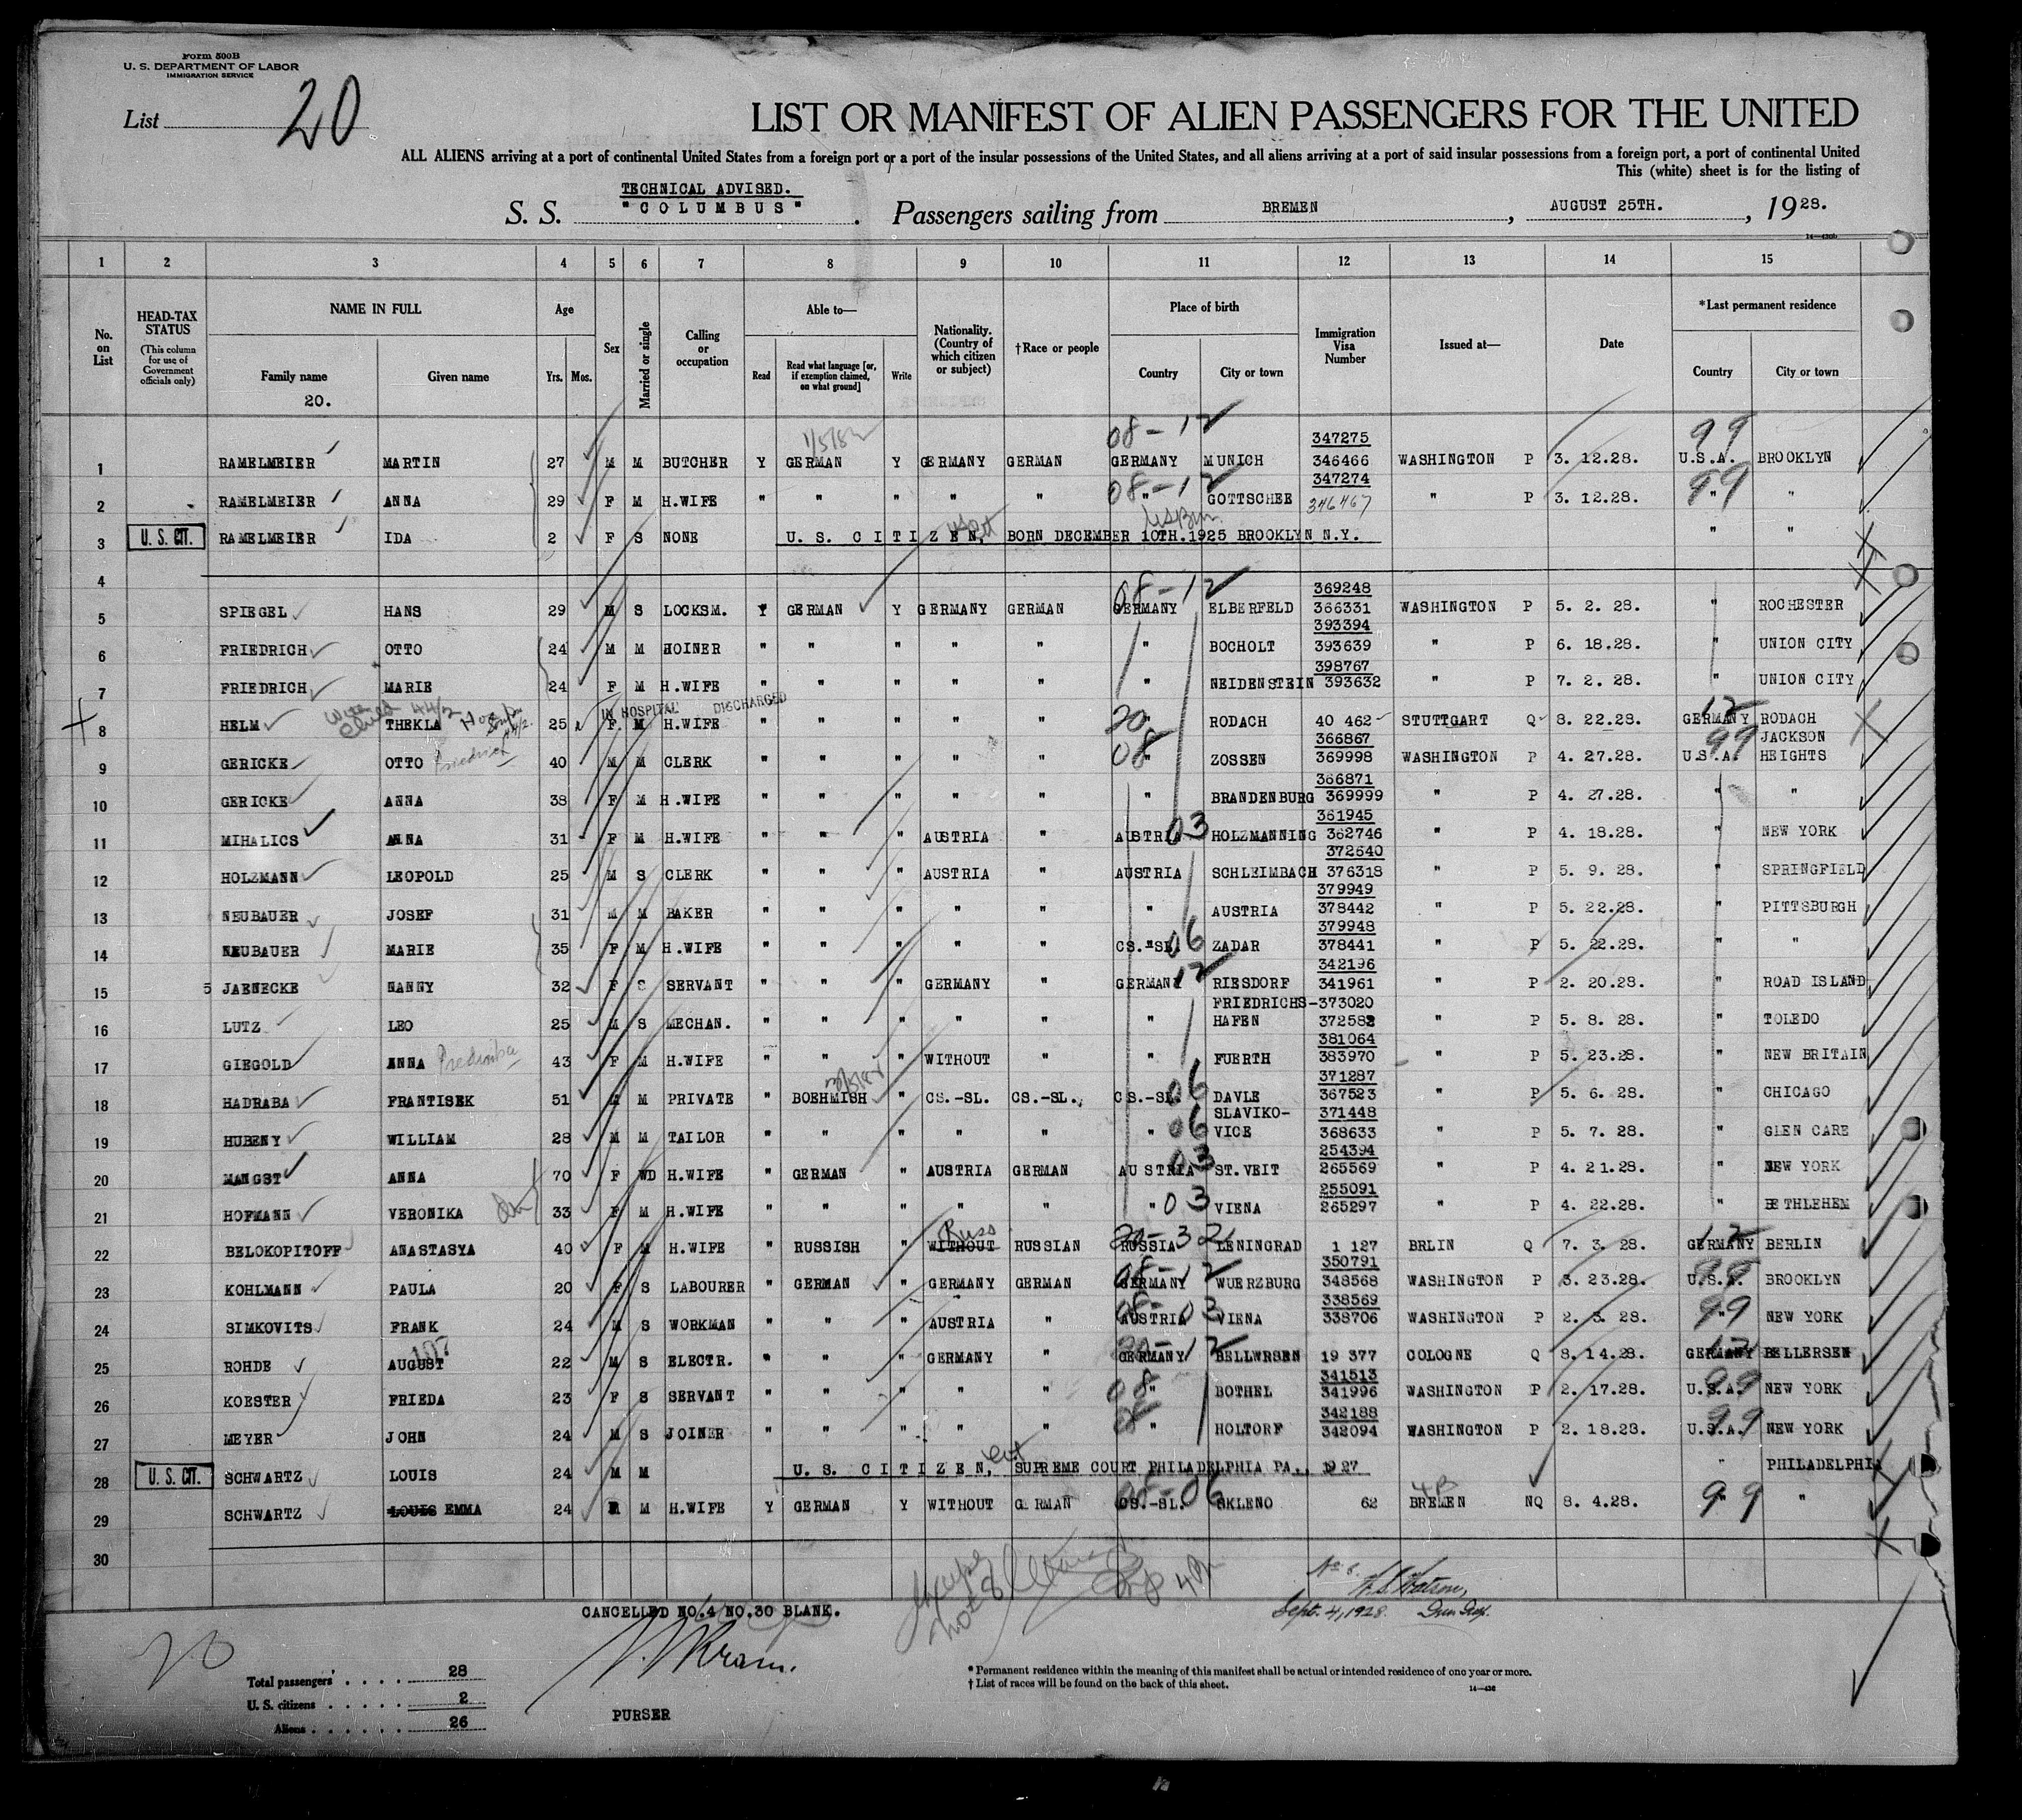 Form 500B
U. S. DEPARTMENT OF LABOR
IMMIGRATION SERVICE
List 20
LIST OR MANIFEST OF ALIEN PASSENGERS FOR THE UNITED
ALL ALIENS arriving at a port of continental United States from a foreign port or a port of the insular possessions of the United States, and all aliens arriving at a port of said insular possessions from a foreign port, a port of continental United
This (white) sheet is for the listing of
TECHNICAL ADVISED.
S. S. "COLUMBUS". Passengers sailing from BREMEN, AUGUST 25TH., 1928.
14—430b
1 2 3 4 5 6 7 8 9 10 11 12 13 14 15
No. on List
HEAD-TAX STATUS (This column for use of Government officials only)
NAME IN FULL Family name Given name
20.
Age Yrs. Mos.
Sex
Married or single
Calling or occupation
Able to— Read Read what language [or, if exemption claimed, on what ground] Write
Nationality. (Country of which citizen or subject)
†Race or people
Place of birth Country City or town
Immigration Visa Number
Issued at—
Date
*Last permanent residence Country City or town
08-12 347275 99
1 RAMELMEIER MARTIN 27 M M BUTCHER Y GERMAN Y GERMANY GERMAN GERMANY MUNICH 346466 WASHINGTON P 3. 12.28. U.S.A. BROOKLYN
08-12 347274 99
2 RAMELMEIER ANNA 29 F M H.WIFE " " " " " " GOTTSCHEE 346467 " P 3. 12.28. " "
3 U. S. CIT. RAMELMEIER IDA 2 F S NONE U. S. CITIZEN, BORN DECEMBER 10TH.1925 BROOKLYN N.Y. " "
4
08-12 369248
5 SPIEGEL HANS 29 M S LOCKSM. Y GERMAN Y GERMANY GERMAN GERMANY ELBERFELD 366331 WASHINGTON P 5. 2. 28. " ROCHESTER
393394
6 FRIEDRICH OTTO 24 M M HOINER " " " " " " BOCHOLT 393639 " P 6. 18.28. " UNION CITY
398767
7 FRIEDRICH MARIE 24 F M H.WIFE " " " " " " NEIDENSTEIN 393632 " P 7. 2. 28. " UNION CITY
IN HOSPITAL DISCHARGED
8 HELM THEKLA 25 F M H.WIFE " " " " " 20 " RODACH 40 462 STUTTGART Q 8. 22.28. GERMANY 12 RODACH
366867 JACKSON
9 GERICKE OTTO Friedrich 40 M M CLERK " " " " " 08 " ZOSSEN 369998 WASHINGTON P 4. 27.28. U.S.A. 99 HEIGHTS
366871
10 GERICKE ANNA 38 F M H.WIFE " " " " " " BRANDENBURG 369999 " P 4. 27.28. " "
361945
11 MIHALICS ANNA 31 F M H.WIFE " " " AUSTRIA " AUSTRIA 03 HOLZMANNING 362746 " P 4. 18.28. " NEW YORK
372640
12 HOLZMANN LEOPOLD 25 M S CLERK " " " AUSTRIA " AUSTRIA SCHLEIMBACH 376318 " P 5. 9. 28. " SPRINGFIELD
379949
13 NEUBAUER JOSEF 31 M M BAKER " " " " " " AUSTRIA 378442 " P 5. 22.28. " PITTSBURGH
379948
14 NEUBAUER MARIE 35 F M H.WIFE " " " " " CS.-SL. 06 ZADAR 378441 " P 5. 22.28. " "
342196
15 5 JAENECKE NANNY 32 F S SERVANT " " " GERMANY " GERMANY 12 RIESDORF 341961 " P 2. 20.28. " ROAD ISLAND
FRIEDRICHS-373020
16 LUTZ LEO 25 M S MECHAN. " " " " " " HAFEN 372582 " P 5. 8. 28. " TOLEDO
381064
17 GIEGOLD ANNA 43 F M H.WIFE " " " WITHOUT " " FUERTH 383970 " P 5. 23.28. " NEW BRITAIN
371287
18 HADRABA FRANTISEK 51 M M PRIVATE " BOEHMISH " CS.-SL. CS.-SL. CS.-SL. 06 DAVLE 367523 " P 5. 6. 28. " CHICAGO
SLAVIKO- 371448
19 HUBENY WILLIAM 28 M M TAILOR " " " " " " 06 VICE 368633 " P 5. 7. 28. " GLEN CARE
254394
20 MANGST ANNA 70 F WD H.WIFE " GERMAN " AUSTRIA GERMAN AUSTRIA 03 ST.VEIT 265569 " P 4. 21.28. " NEW YORK
255091
21 HOFMANN VERONIKA 33 F M H.WIFE " " " " " " 03 VIENA 265297 " P 4. 22.28. " BETHLEHEM
Russ
22 BELOKOPITOFF ANASTASYA 40 F M H.WIFE " RUSSISH " WITHOUT RUSSIAN RUSSIA LENINGRAD 1 127 BRLIN Q 7. 3. 28. GERMANY 12 BERLIN
08-12 350791
23 KOHLMANN PAULA 20 F S LABOURER " GERMAN " GERMANY GERMAN GERMANY WUERZBURG 348568 WASHINGTON P 3. 23.28. U.S.A. 99 BROOKLYN
338569
24 SIMKOVITS FRANK 24 M S WORKMAN " " " AUSTRIA " AUSTRIA 08-03 VIENA 338706 WASHINGTON P 2. 3. 28. " 99 NEW YORK
25 ROHDE AUGUST 22 M S ELECTR. " " " GERMANY " GERMANY 20-12 BELLWRSEN 19 377 COLOGNE Q 8. 14.28. GERMANY 12 BELLERSEN
341513
26 KOESTER FRIEDA 23 F S SERVANT " " " " " 08 " BOTHEL 341996 WASHINGTON P 2. 17.28. U.S.A. 99 NEW YORK
342188
27 MEYER JOHN 24 M S JOINER " " " " " 08 " HOLTORF 342094 WASHINGTON P 2. 18.28. U.S.A. 99 NEW YORK
28 U. S. CIT. SCHWARTZ LOUIS 24 M M U. S. CITIZEN, SUPREME COURT PHILADELPHIA PA., 1927 " PHILADELPHIA
29 SCHWARTZ LOUIS EMMA 24 M H.WIFE Y GERMAN Y WITHOUT GERMAN CS.-SL. 06 SKLENO 62 BREMEN NQ 8. 4.28. " 99 "
30
CANCELLED NO.4 NO.30 BLANK.
Sept. 4, 1928.
20
Total passengers . . . . 28
U. S. citizens . . . . . 2
Aliens . . . . . . 26
PURSER
* Permanent residence within the meaning of this manifest shall be actual or intended residence of one year or more.
† List of races will be found on the back of this sheet.
14—430